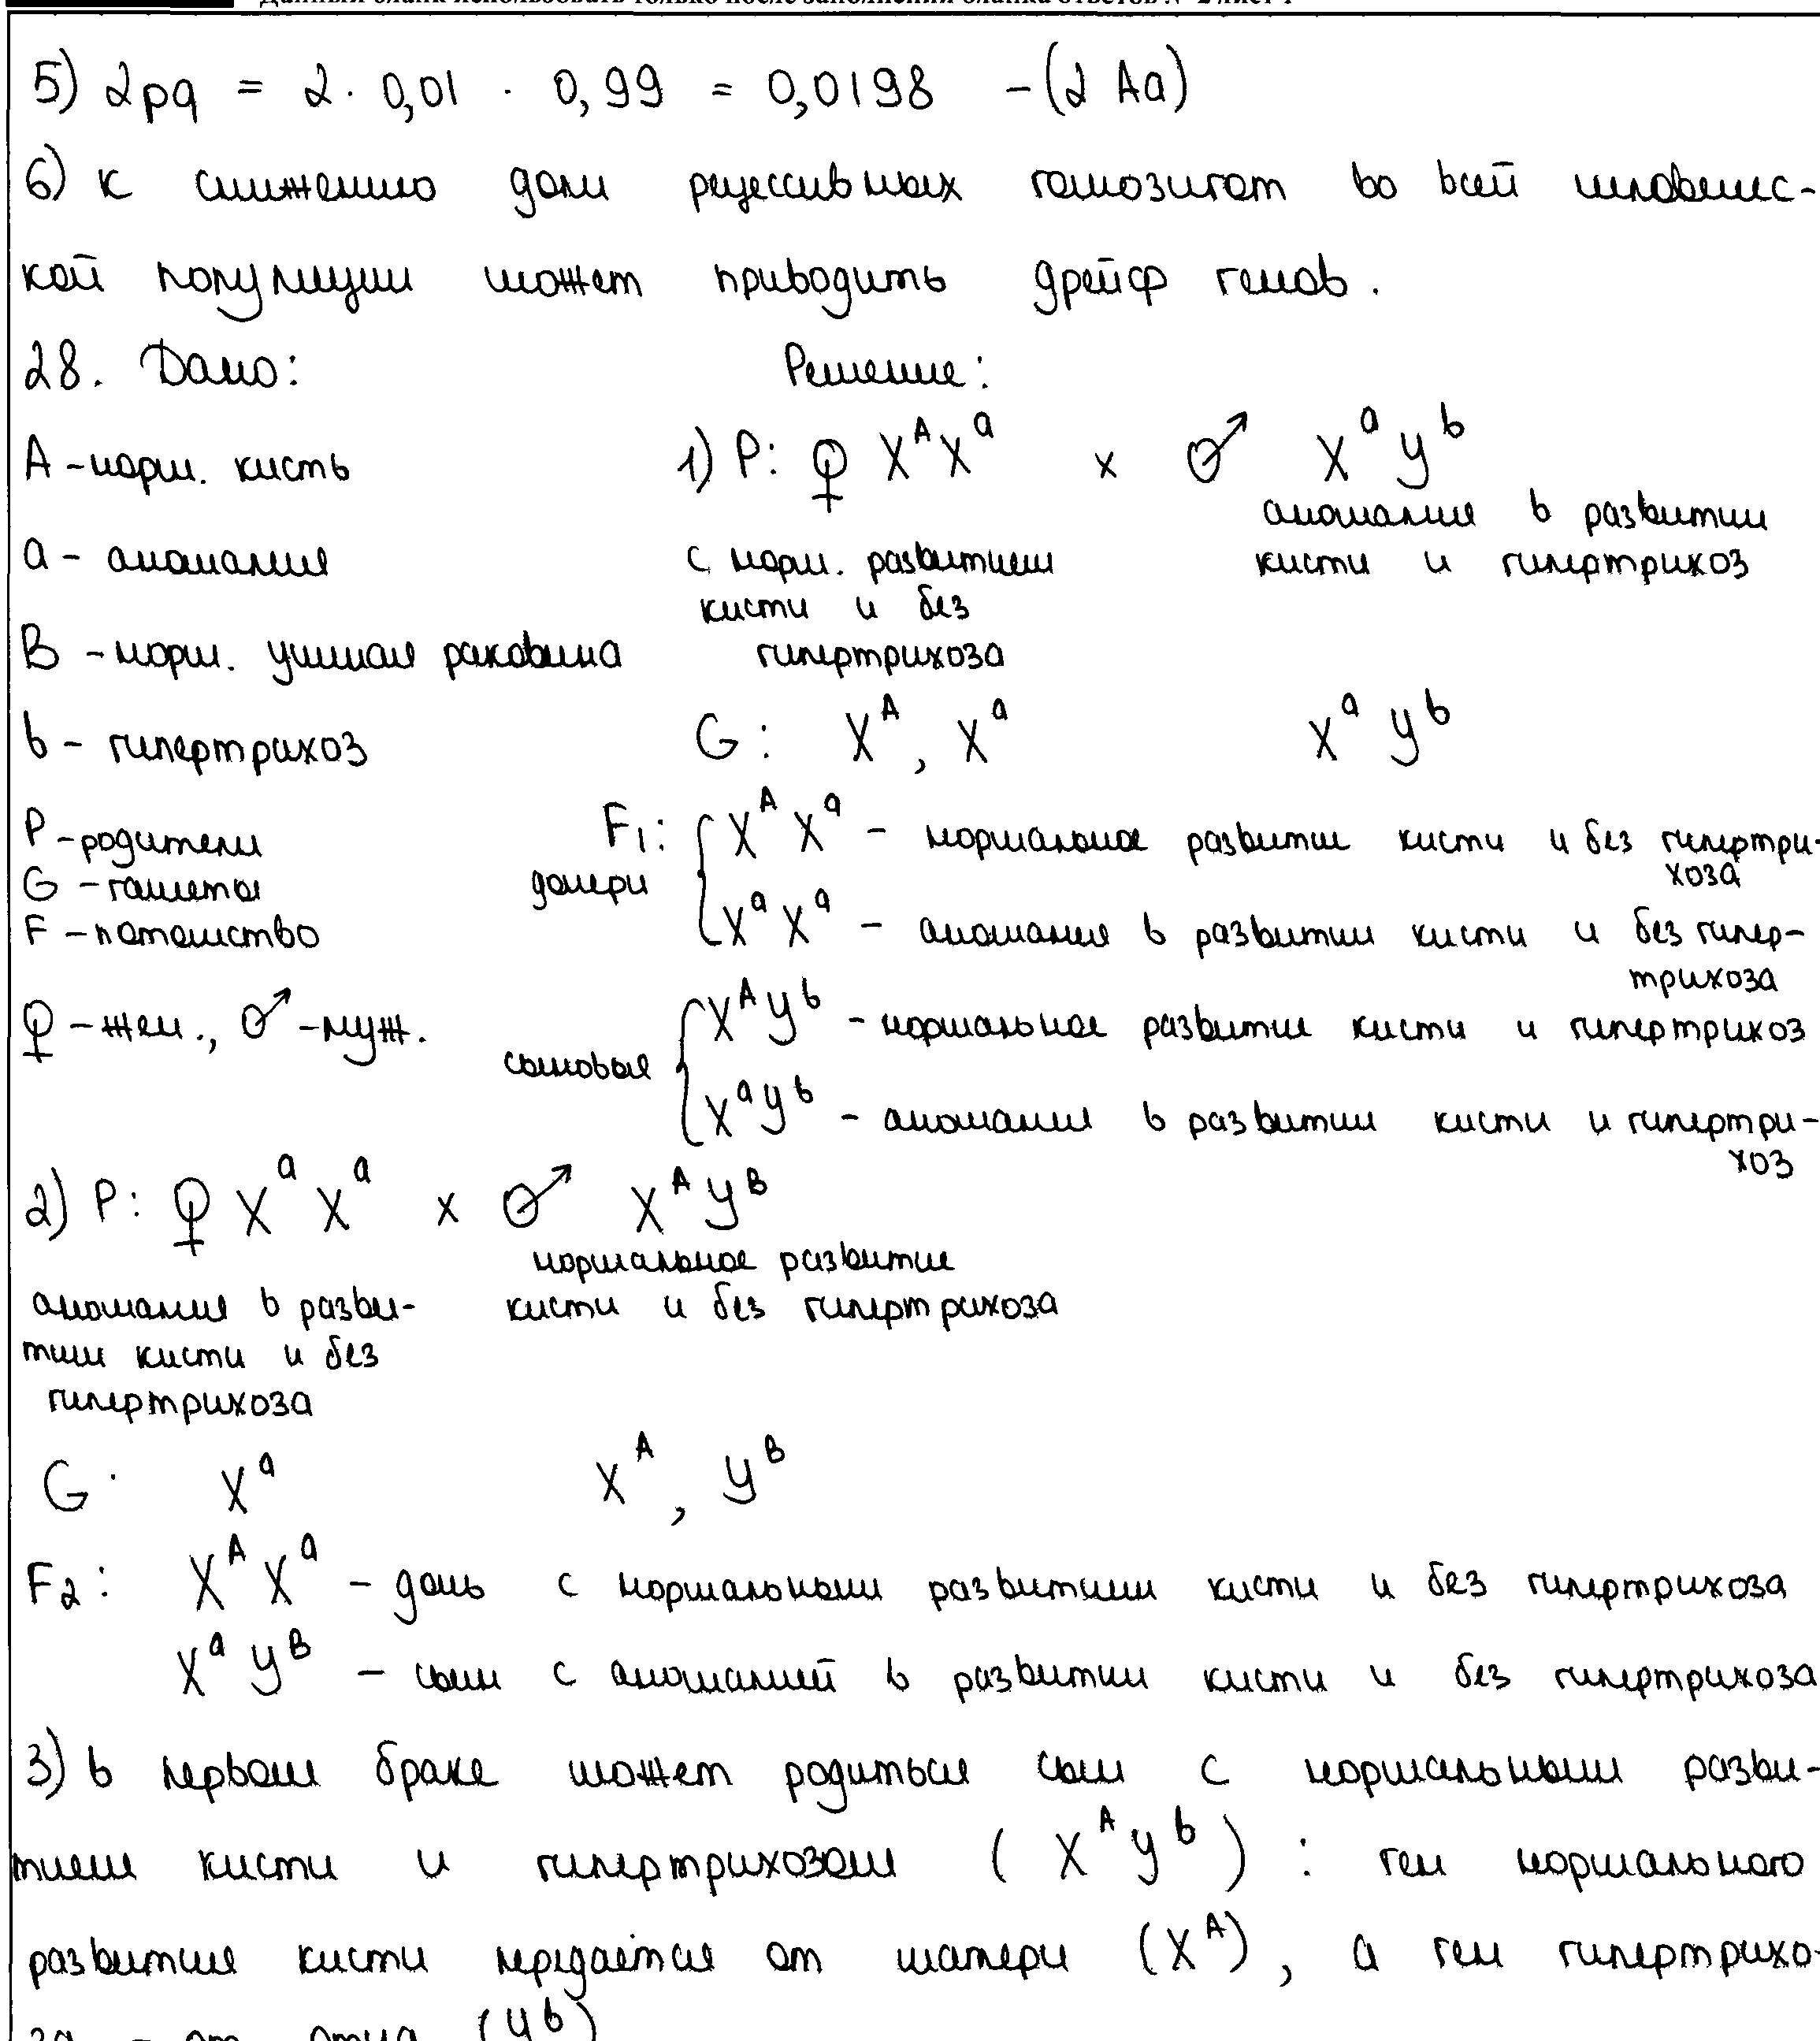 Данный бланк использовать только после заполнения бланка ответов № 2 лист 1
5) 2pq = 2 · 0,01 · 0,99 = 0,0198 - (2 Aa)
6) к снижению доли рецессивных гомозигот во всей человечес-
кой популяции может приводить дрейф генов.
28. Дано:
A - норм. кисть
a - аномалия
B - норм. ушная раковина
b - гипертрихоз
P - родители
G - гаметы
F - потомство
♀ - жен., ♂ - муж.
Решение:
1) P: ♀ X^A X^a x ♂ X^a Y^b
с норм. развитием
кисти и без
гипертрихоза
аномалия в развитии
кисти и гипертрихоз
G: X^A, X^a X^a Y^b
F1:
дочери
X^A X^a - нормальное развитие кисти и без гипертри-
хоза
X^a X^a - аномалия в развитии кисти и без гипер-
трихоза
сыновья
X^A Y^b - нормальное развитие кисти и гипертрихоз
X^a Y^b - аномалия в развитии кисти и гипертри-
хоз
2) P: ♀ X^a X^a x ♂ X^A Y^B
аномалия в разви-
тии кисти и без
гипертрихоза
нормальное развитие
кисти и без гипертрихоза
G: X^a X^A, Y^B
F2: X^A X^a - дочь с нормальным развитием кисти и без гипертрихоза
X^a Y^B - сын с аномалией в развитии кисти и без гипертрихоза
3) в первом браке может родиться сын с нормальным разви-
тием кисти и гипертрихозом (X^A Y^b) : ген нормального
развития кисти передаётся от матери (X^A), а ген гипертрихо-
за - от отца (Y^b)